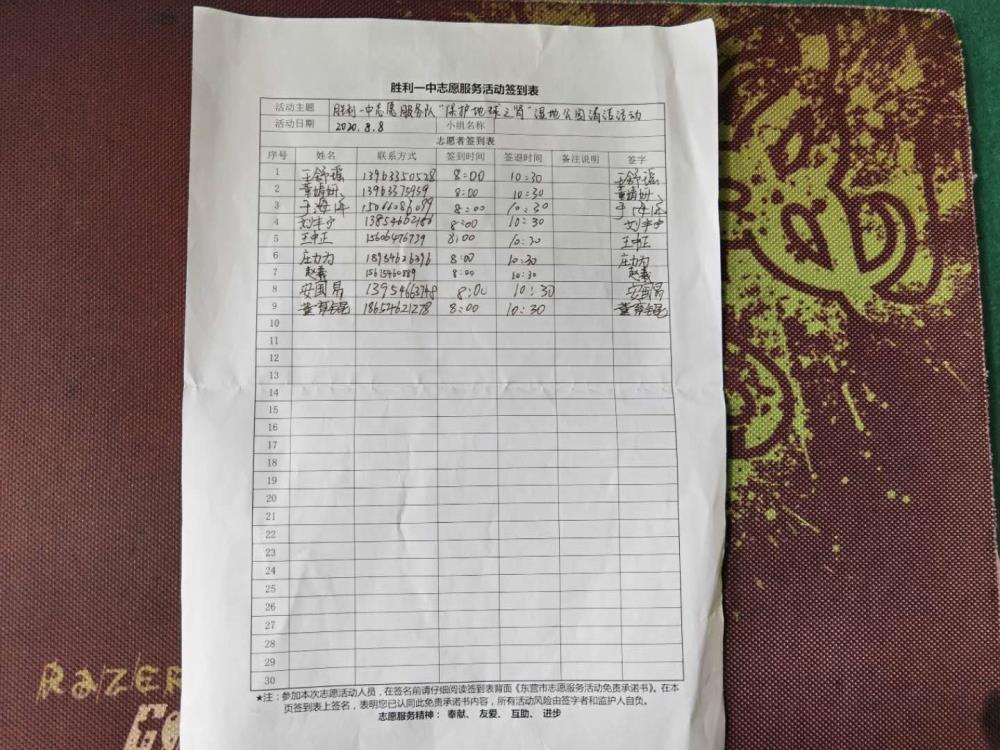 胜利一中志愿服务活动签到表
活动主题 胜利一中志愿服务队“保护地球之肾”湿地公园清洁活动
活动日期 2020.8.8 小组名称
志愿者签到表
序号 姓名 联系方式 签到时间 签退时间 备注说明 签字
1 王舒瑶 13963350528 8:00 10:30 王舒瑶
2 董婧妍 13963375959 8:00 10:30 董婧妍
3 于海洋 15066086099 8:00 10:30 于海洋
4 刘丰宁 13854662186 8:00 10:30 刘丰宁
5 王中正 15606476739 8:00 10:30 王中正
6 庄力为 18954626396 8:00 10:30 庄力为
7 赵義 15615460889 8:00 10:30 赵義
8 安国易 13954663748 8:00 10:30 安国易
9 董育锟 18654621278 8:00 10:30 董育锟
10
11
12
13
14
15
16
17
18
19
20
21
22
23
24
25
26
27
28
29
30
★注：参加本次志愿活动人员，在签名前请仔细阅读签到表背面《东营市志愿服务活动免责承诺书》。在本
页签到表上签名，表明您已认同此免责承诺书内容，所有活动风险由签字者和监护人自负。
志愿服务精神： 奉献、 友爱、 互助、 进步
RAZER